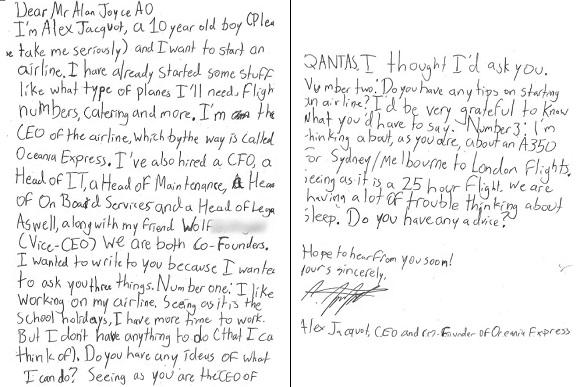 Dear Mr Alan Joyce AO
I'm Alex Jacquot, a 10 year old boy (Plea
take me seriously) and I want to start an
airline. I have already started some stuff
like what type of planes I'll need, flight
numbers, catering and more. I'm the
CEO of the airline, which by the way is called
Oceania Express. I've also hired a CFO, a
Head of IT, a Head of Maintenance, a Hea
of On Board Services and a Head of Lega
Aswell, along with my friend Wolf
(Vice-CEO) We are both Co-Founders.
I wanted to write to you because I wante
to ask you three things. Number one: I like
working on my airline. Seeing as it is the
school holidays, I have more time to work.
But I don't have anything to do (that I ca
think of). Do you have any ideas of what
I can do? Seeing as you are the CEO of
QANTAS, I thought I'd ask you.
Number two: Do you have any tips on starting
an airline? I'd be very grateful to know
what you'd have to say. Number 3: I'm
thinking about, as you are, about an A350
for Sydney/Melbourne to London flights.
seeing as it is a 25 hour flight, we are
having a lot of trouble thinking about
sleep. Do you have any advice?
Hope to hear from you soon!
yours sincerely,
Alex Jacquot, CEO and co-Founder of Oceania Express